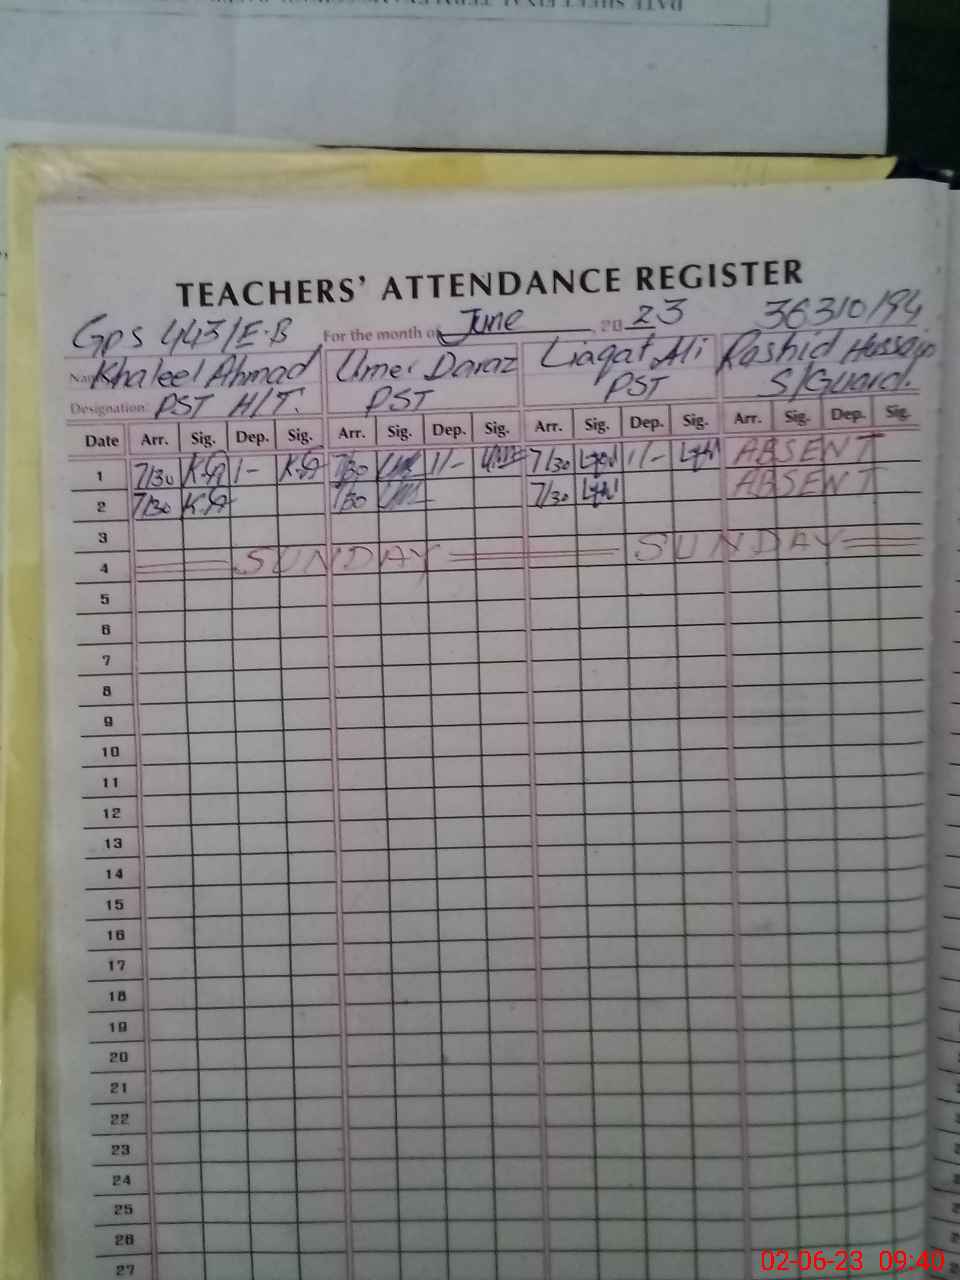 DATE SHEET FINAL TERM EXAMINATION
TEACHERS' ATTENDANCE REGISTER
GPS 443/E.B For the month of June, 2023 36310194
Name Khaleel Ahmad Umer Daraz Liaqat Ali Rashid Hussain
Designation: PST H/T. PST PST S/Guard.
Date Arr. Sig. Dep. Sig. Arr. Sig. Dep. Sig. Arr. Sig. Dep. Sig. Arr. Sig. Dep. Sig.
1 7/30 1/- 7/30 1/- 7/30 1/- ABSENT
2 7/30 7/30 7/30 ABSENT
3
4 SUNDAY SUNDAY
5
6
7
8
9
10
11
12
13
14
15
16
17
18
19
20
21
22
23
24
25
26
27
02-06-23 09:40